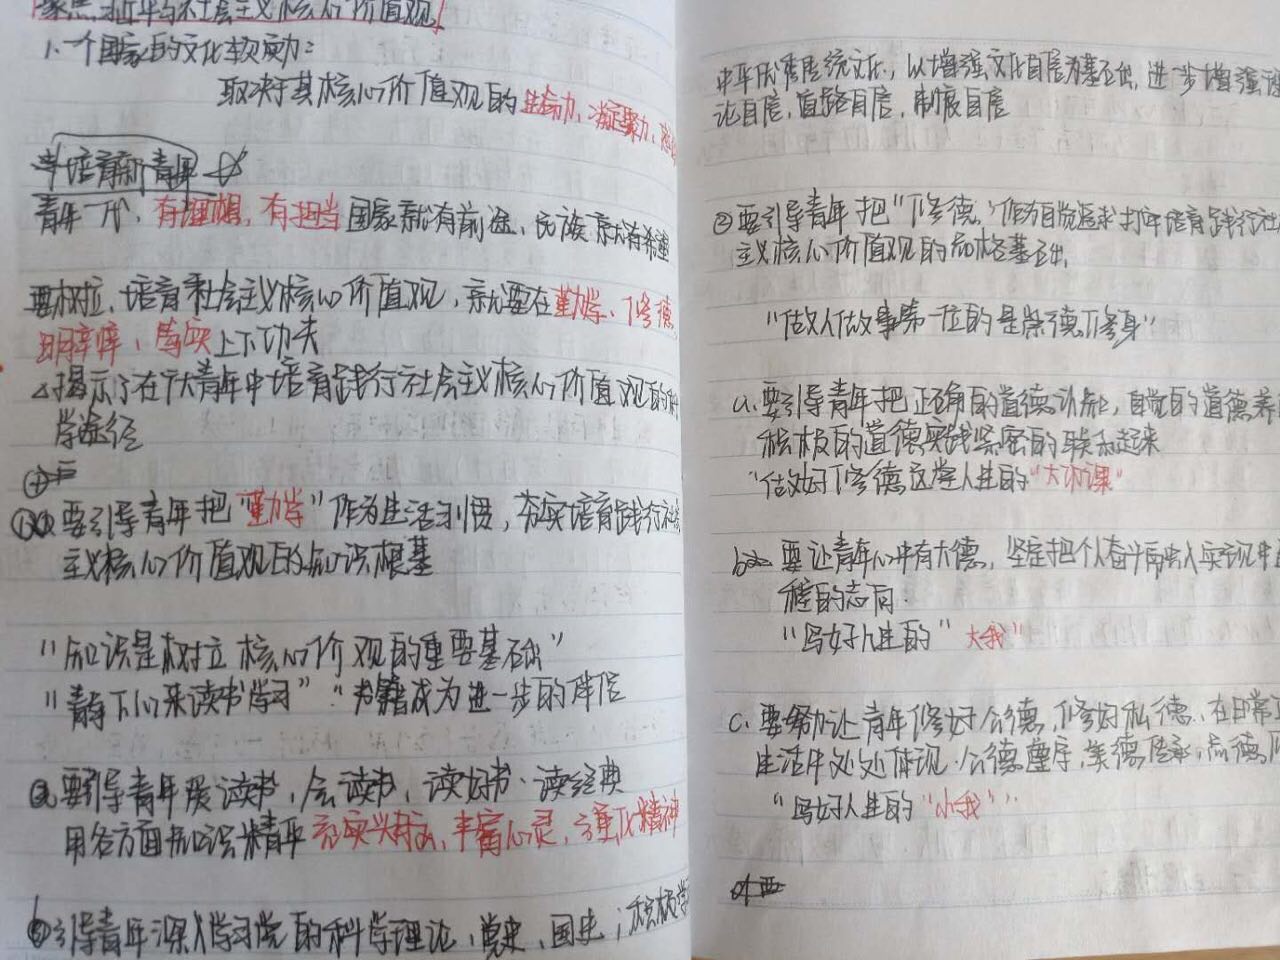 聚焦 习近平与社会主义核心价值观
1、一个国家的文化软实力：
取决于其核心价值观的生命力，凝聚力，
培育新青年
青年一代，有理想，有担当国家就有前途，民族就有希望
要树立、培育和社会主义核心价值观，就要在勤学、修德、
明辨、笃实上下功夫
揭示了在广大青年中培育践行社会主义核心价值观的科
学途径
① 要引导青年把"勤学"作为生活习惯，夯实培育践行社会
主义核心价值观的知识根基
"知识是树立核心价观的重要基础"
"静下心来读书学习" "书籍成为进一步的伴侣
a.要引导青年爱读书，会读书，读好书，读经典
用各方面知识来青年充实头脑，丰富心灵，净化精神
b 引导青年深入学习党的科学理论，党史，国史；积极学
中华优秀传统文化，以增强文化自信为基础，进一步增强理
论自信，道路自信，制度自信
② 要引导青年把"修德"作为自觉追求打牢培育践行社会
主义核心价值观的品格基础，
"做人做事第一位的是崇德修身"
a.要引导青年把正确的道德认知，自觉的道德养
积极的道德实践紧密的联系起来
"做好修德这堂人生的"大功课"
b 要让青年心中有大德，坚定把个人奋斗融入实现中
程的志向.
"写好人生的"大我"
c.要努力让青年修好公德，修好私德，在日常
生活中处处体现公德遵守，美德传承，品德
"写好人生的"小我"